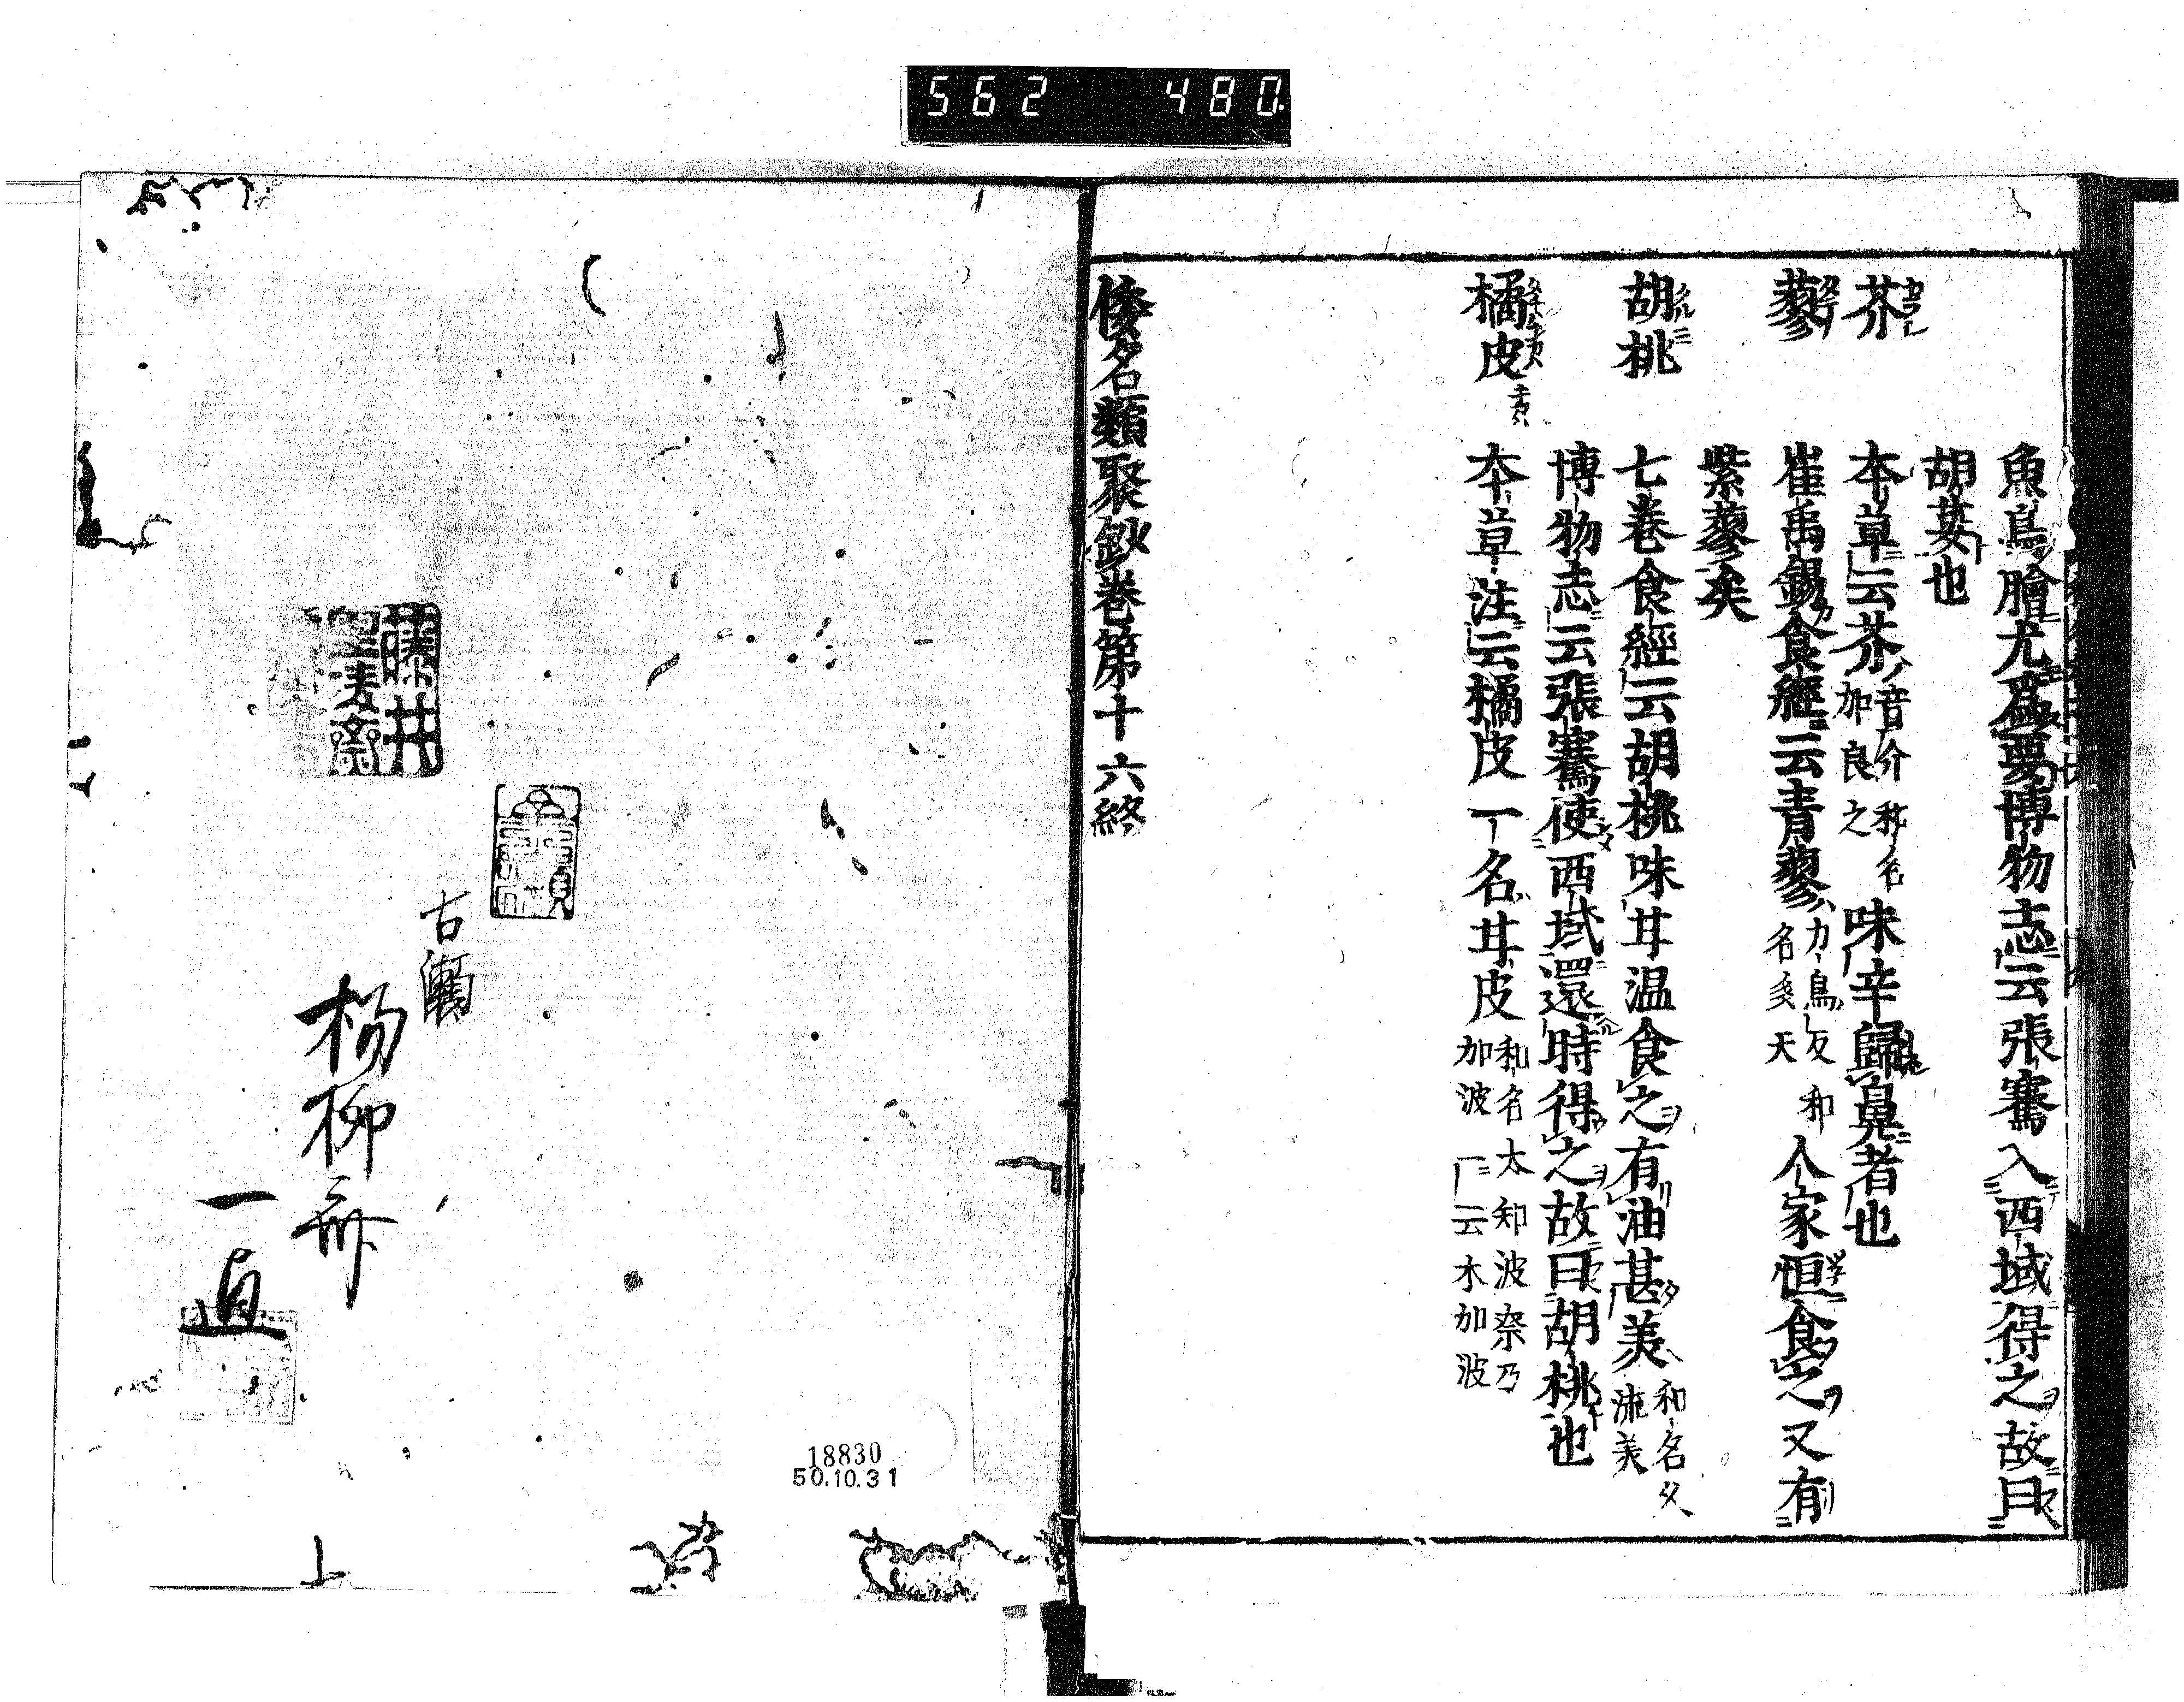 562 480
魚鳥膾尤爲要博物志云張騫入西域得之故曰
胡荽也
芥 本草云芥音介和名加良之味辛歸鼻者也
蓼 崔禹錫食經云青蓼力鳥反和名多天人家恒食之又有
紫蓼矣
胡桃 七卷食經云胡桃味甘温食之有油甚美和名久流美
博物志云張騫使西域還時得之故曰胡桃也
橘皮 本草注云橘皮一名甘皮和名太知波奈乃加波一云木加波
倭名類聚鈔卷第十六終
藤井
古
楊柳
一
18830
50.10.31
上